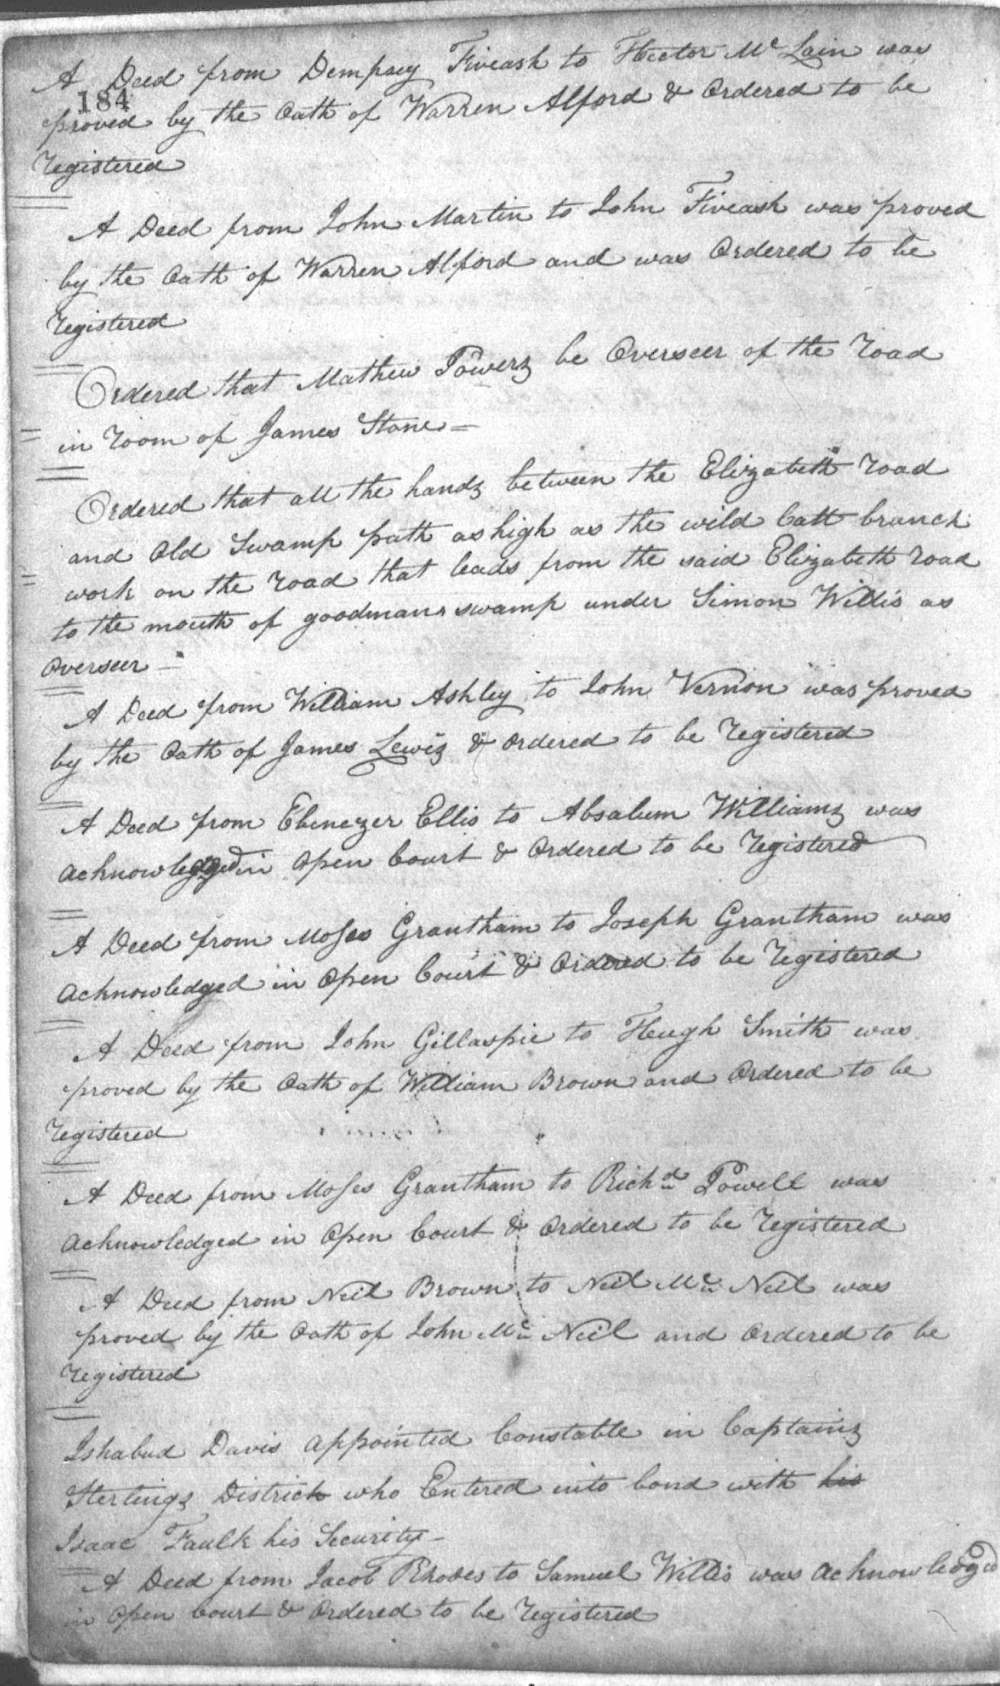 184
A Deed from Dempsey Fiveash to Hector Mc Lain was
proved by the Oath of Warren Alford & Ordered to be
registered
A Deed from John Martin to John Fiveash was proved
by the Oath of Warren Alford and was Ordered to be
registered
Ordered that Mathew Powerz be Overseer of the road
in room of James Stone
Ordered that all the handz between the Elizabeth road
and Old Swamp path as high as the wild Catt branch
work on the road that leads from the said Elizabeth road
to the mouth of goodmans swamp under Simon Willis as
overseer
A Deed from William Ashley to John Vernon was proved
by the Oath of James Lewiz & ordered to be registered
A Deed from Ebenezer Ellis to Absalum Williamz was
acknowledged in Open Court & Ordered to be registered
A Deed from Moses Grantham to Joseph Grantham was
acknowledged in Open Court & Ordered to be registered
A Deed from John Gillaspie to Hugh Smith was
proved by the Oath of William Brown and Ordered to be
registered
A Deed from Moses Grantham to Richd Powell was
acknowledged in Open Court & Ordered to be registered
A Deed from Neil Brown to Neil Mc Neil was
proved by the Oath of John Mc Neil and Ordered to be
registered
Ishabud Davis appointed Constable in Captainz
Sterlingz District who Entered into bond with his
Isaac Faulk his Security
A Deed from Jacob Rhodes to Samuel Willis was acknowledged
in Open Court & Ordered to be registered